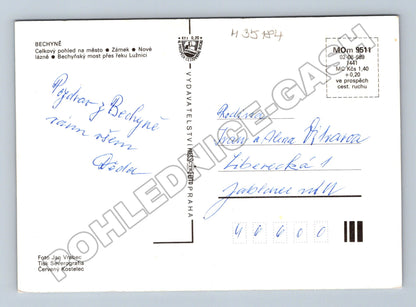 BECHYNĚ
Celkový pohled na město • Zámek • Nové
lázně • Bechyňský most přes řeku Lužnici
Kčs 0,20
MOm 9511
02-06 589
1441
MC Kčs 1,40
+0,20
ve prospěch
cest. ruchu
VYDAVATELSTVÍ PRAHA
Pozdrav z Bechyně
vám všem
Rodina
a
Liberecká 1
Jablonec n/N
4 6 6 0 0
Foto Jan Vrabec
Tisk Severografia
Červený Kostelec
POHLEDNICE-GASH